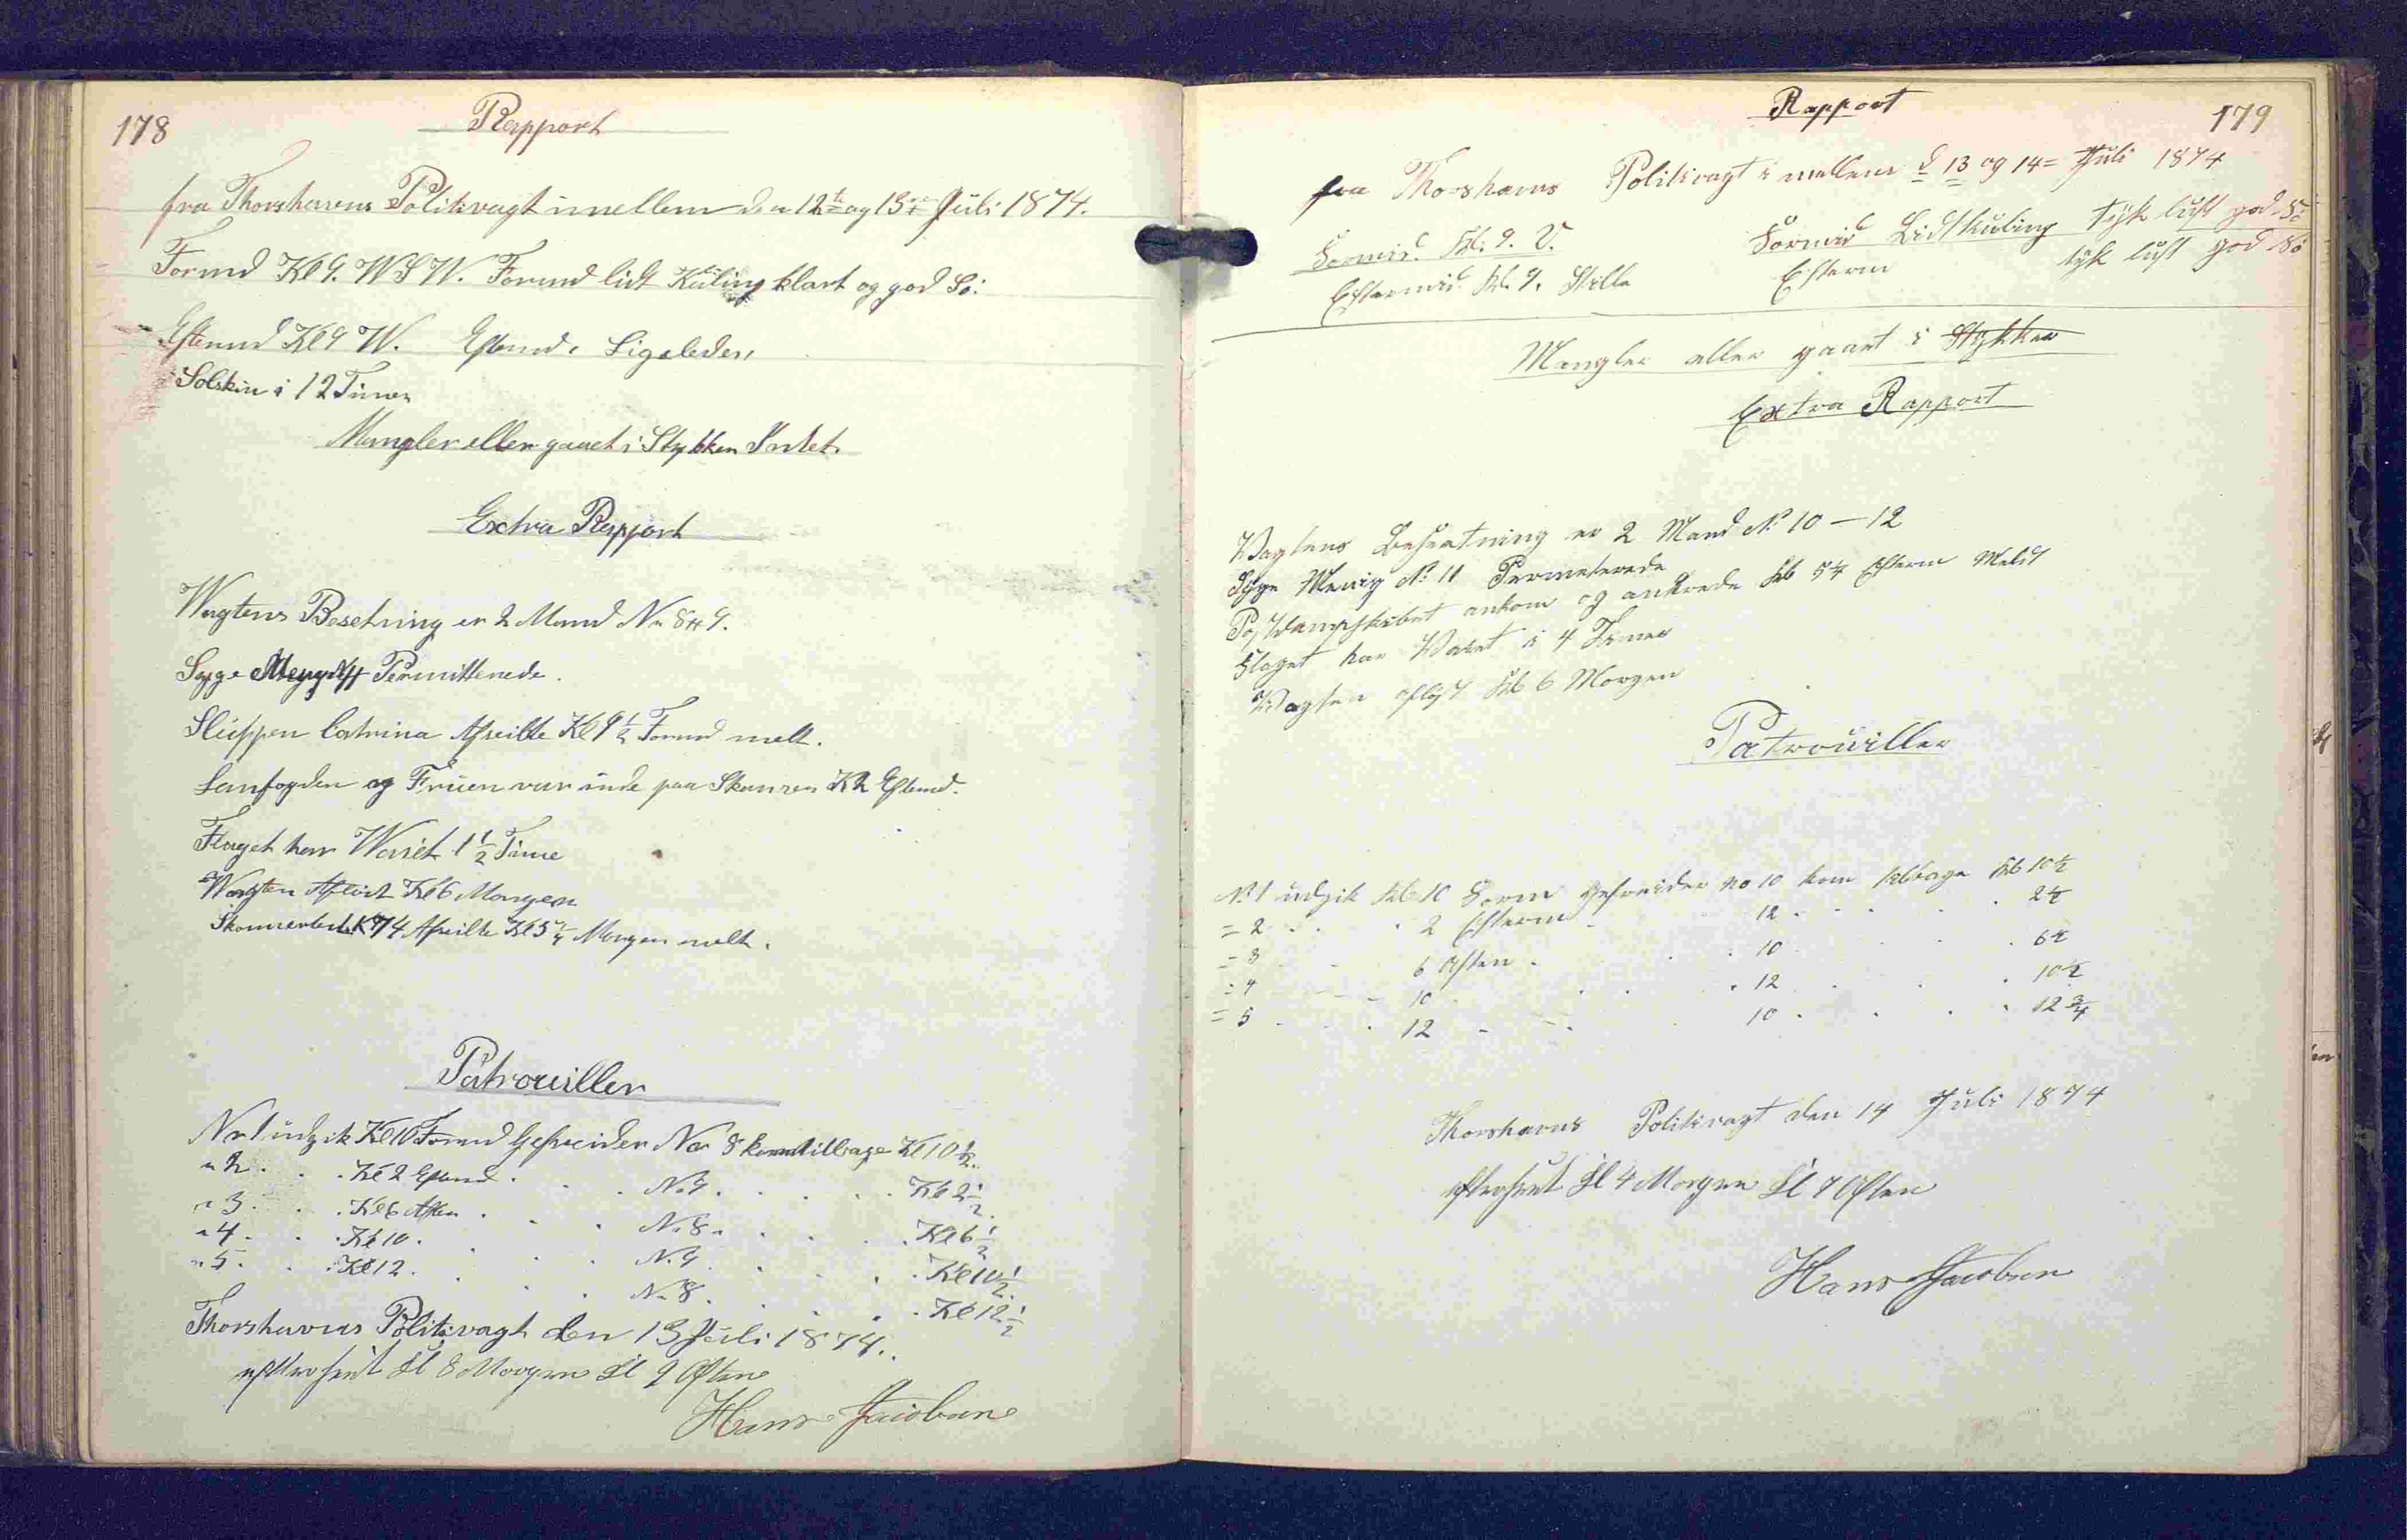 178
Rapport
fra Thorshavns Politivagt imellem den 12te og 13de Juli 1874.
Formd Kl 9. WSW. Formd lidt Kuling klart og god Sö:
Eftermd Kl 9 W. Eftermd. Ligeledes,
Solskin i 12 Timer
Mangler eller gaaet i Stykken Intet.
Extra Rapport
Wagtens Besetning er 2 Mand No 8 & 9.
Syge Permitterede.
Slüppen Catrina Afseilte Kl 9 1/2 Formd melt.
Lanfogden og Früen var inde paa Skansen Kl 2 Eftemd.
Flaget har Waiet 1 1/2 Time
Wagten Aflöst Kl 6 Morgen
Afseilte Kl 5 1/4 Morgen melt.
Patrouiller
No 1 üdgik Kl 10 Formd Gefreider No 8 kom tilbage Kl 10 1/2.
" 2. . . Kl 2 Eftemd . . . No 9. . . . . Kl 2 1/2.
" 3. . . Kl 6 Aften . . . No 8. . . . . Kl 6 1/2
" 4. . . Kl 10. . . . No 9 . . . . Kl 10 1/2.
" 5. . . Kl 12. . . . No 8. . . . . Kl 12 1/2
Thorshavns Politivagt den 13 Juli 1874.
efterseet Kl 8 Morgen Kl 9 Aften
Hans Jacobsen
179
Rapport
fra Thorshavns Politivagt i mellem d 13 og 14 = Juli 1874
Formid. Kl. 9. V. Formid Lidt Kuling tyk luft god Sö
Eftermid. Kl. 9. Stille Efterm tyk luft god Sö
Mangler eller gaaet i Stykker
Extra Rapport
Vagtens Besætning er 2 Mand No 10 — 12
Syge Menig No 11 Permeterede
Postdampskibet ankom og ankrede Kl 5 1/4 Efterm Meldt
Flaget har Vaiet i 4 Timer
Vagten aflöst Kl 6 Morgen
Patrouiller
No 1 udgik Kl 10 Form Gefreider no 10 kom tilbage Kl 10 1/2
= 2 . . . 2 Efterm . 12 . . . . 2 1/2
= 3 . . 6 Aften . . . 10 . . . 6 1/2
= 4 - - - 10 . . . 12 . . . 10 1/2
= 5 - . . 12 - - . 10 . . . . 12 3/4
Thorshavns Politivagt den 14 Juli 1874
efterseet Kl 4 Morgen Kl 7 Aften
Hans Jacobsen